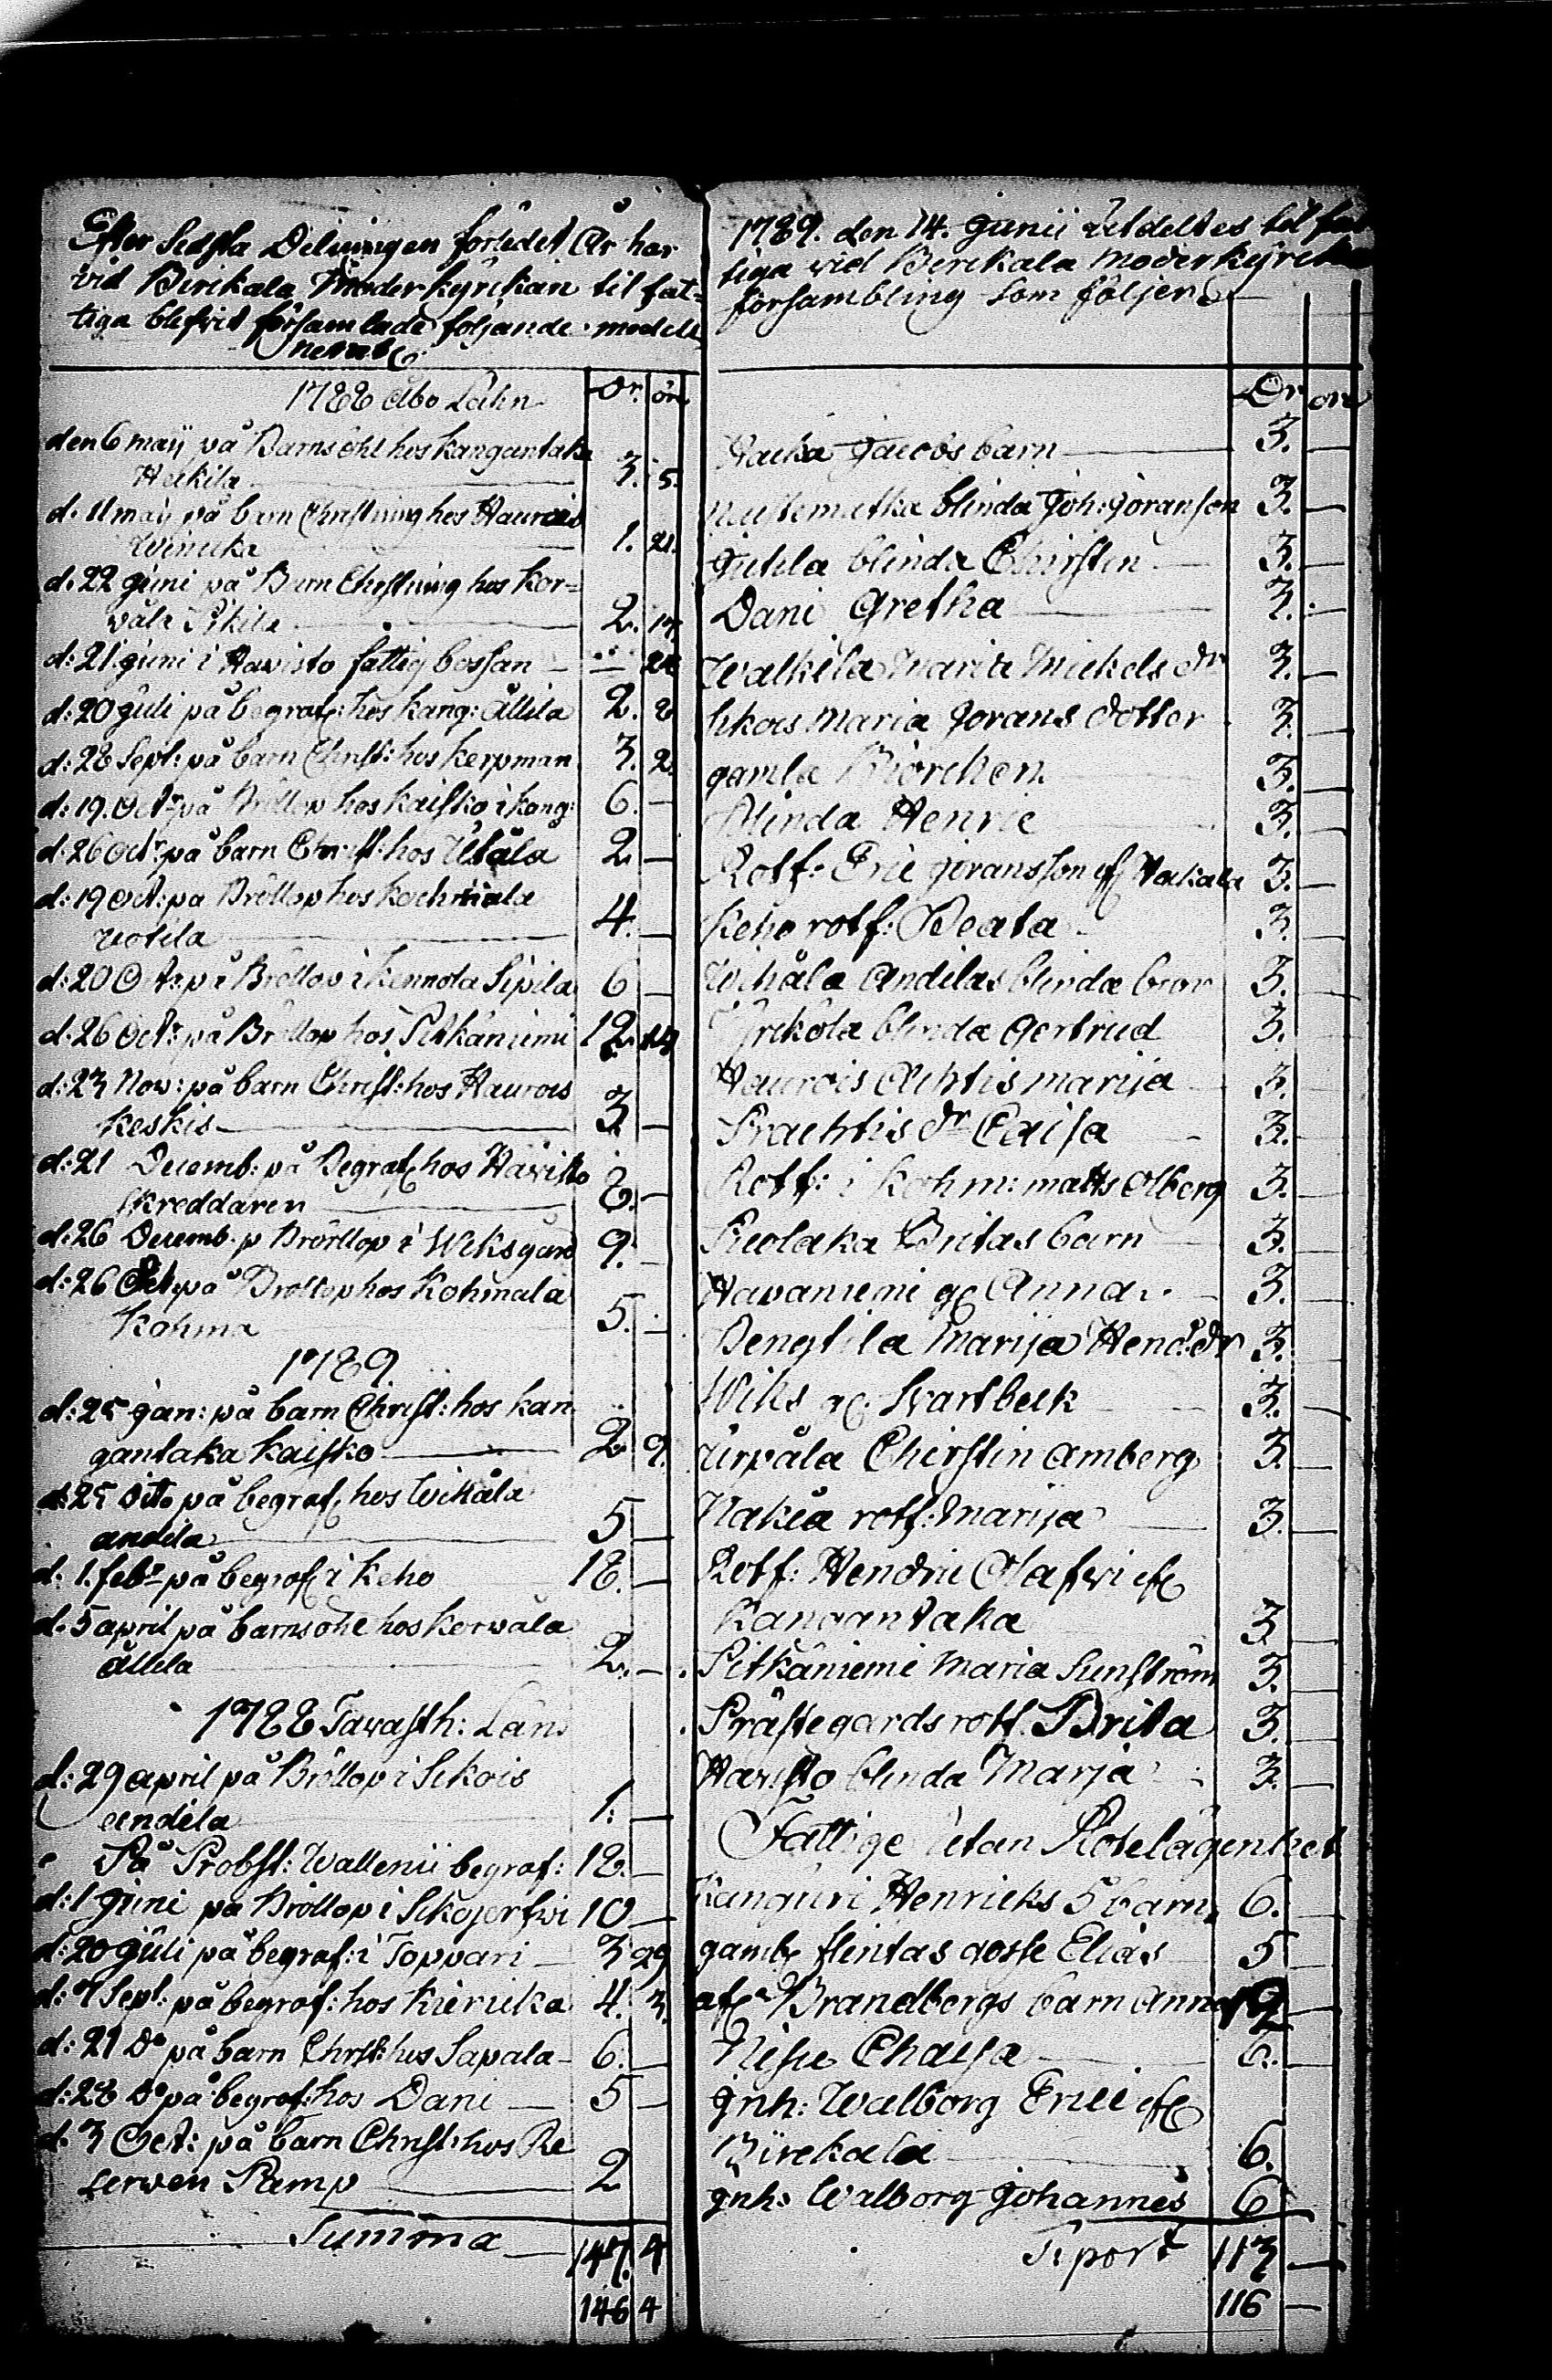 Efter Sedsta Delningen förledet År har
vid Birikala Moder kyrikan til fat-
tiga blefvit församlade följande medell
nembl:
1788 Åbo Lähn Dr. ör
den 6 maij på Barnsöhl hos kangantaka
Heikila 3. 5.
d. 11 maij på barn Christning hos Haurois
1. 21.
d. 22 juni på Barn Christning hos Kor-
väla Pikila 2. 17
d: 21 juni i Havisto fattig bössan 28
d: 20 juli på begraf: hos kang: Ällila 2. 8
d: 28 Sept: på barn Christ: hos kerpman 3. 2.
d: 19. Octr på Bröllop hos kaisko i kang: 6. —
d: 26 octr på barn Christ: hos Utåla 2 —
d: 19 oct: på Bröllop hos kochmala
uotila 4. —
d: 20 Oct: på Bröllop i kennola Sipila 6 —
d: 26 Octr på Bröllop hos Pitkäniemi 12. 14
d: 23 Nov: på barn Christ: hos Haurois
keskis 3. —
d: 21 Decemb: på Begraf: hos Havisto
skreddaren 8. —
d: 26 Decemb. p Bröllop i Wiksgård 9. —
d: 26 Oct på Bröllop hos Kohmala
Kohma 5. —
1789
d: 25 jan: på barn Christ: hos kan
gantaka kaisko 2 9.
d: 25 dito på begraf: hos Wikåla
andila 5 —
d. 1. febr på begraf: i Keho 18. —
d. 5 april på barnsöhl hos korwala
ällila 2. —
1788 Tavasth: Län
d: 29 april på Bröllop i Sikois
andila 1: —
På Probst: Wallenii begraf: 18. —
d: 1 juni på Bröllop i Sikojerfwi 10 —
d: 20 juli på begraf: i Toppari 3 29
d: 7 Sept: på begraf: hos Kierikka 4. 3.
d: 21 Do på barn Christ: hos Sapala 6. —
d: 28 Do på begraf: hos Dani — 5 —
d. 3 Oct: på barn Christ: hos Re
serven Ramp 2
Summa 147. 4
146 4
1789. den 14. Junii utdeltes til fat
tiga vid Birikala Moderkyrick
försambling som följer
Dr öre
Jacobs barn 3. —
blinda Joh: Joransson 3. —
Juhla blinda Chirstin 3. —
Dani Gretha 3. —
Walkila Maria Mickels dr 3. —
Sikois Maria Jorans dotter 3. —
gamla Biörcken 3. —
Blinda Henric 3. —
Rotf: Eric Joransson ifr Takala 3. —
Keho rotf: Beata 3. —
Wihåla Andilas blinda bror 3. —
Yrikölä blinda Gertrud 3. —
Haurois Achtis marija 3. —
Prachtis dr Caisa 3. —
Rotf: i kohm: matts olberg 3. —
Britas barn 3. —
Havaniemi gl Anna 3. —
Bengtila Marija Hend: dr 3. —
Wiks gl. Svartbeck 3. —
urpåla Chirstin amberg 3. —
Nakia rotf: marija 3. —
Rotf: Hendric Olafsi ifr
Kangantaka 3 —
Pitkäniemi Maria Sunström 3. —
Prästegards rotf. Brita 3. —
Havisto blinda Marja 3. —
Fattige utan Rotelägenhet
Henricks 5 barn 6. —
gamb flintas goste Elias 5 —
afl Brandbergs barn Anna 12 —
Chaisa 6. —
jnh: Walborg Erici ifr
Birekala 6. —
jnh: Walborg Johannes 6 —
Tiport 113 —
116 —